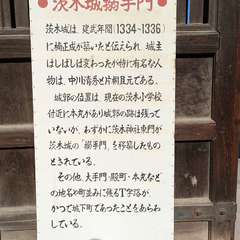 茨木城搦手門
茨木城は、建武年間(1334~1336)
に楠正成が築いたと伝えられ、城主
はしばしば変わったが特に有名な人
物は、中川清秀と片桐且元である。
城郭の位置は、現在の茨木小学校
付近に本丸があり城郭の跡は残っ
ていないが、わずかに茨木神社東門が
茨木城の「搦手門」を移築したもの
とされている。
その他、大手門・殿町・本丸など
の地名や町並みに残るT字路が
かつて城下町であったことをあらわ
している。